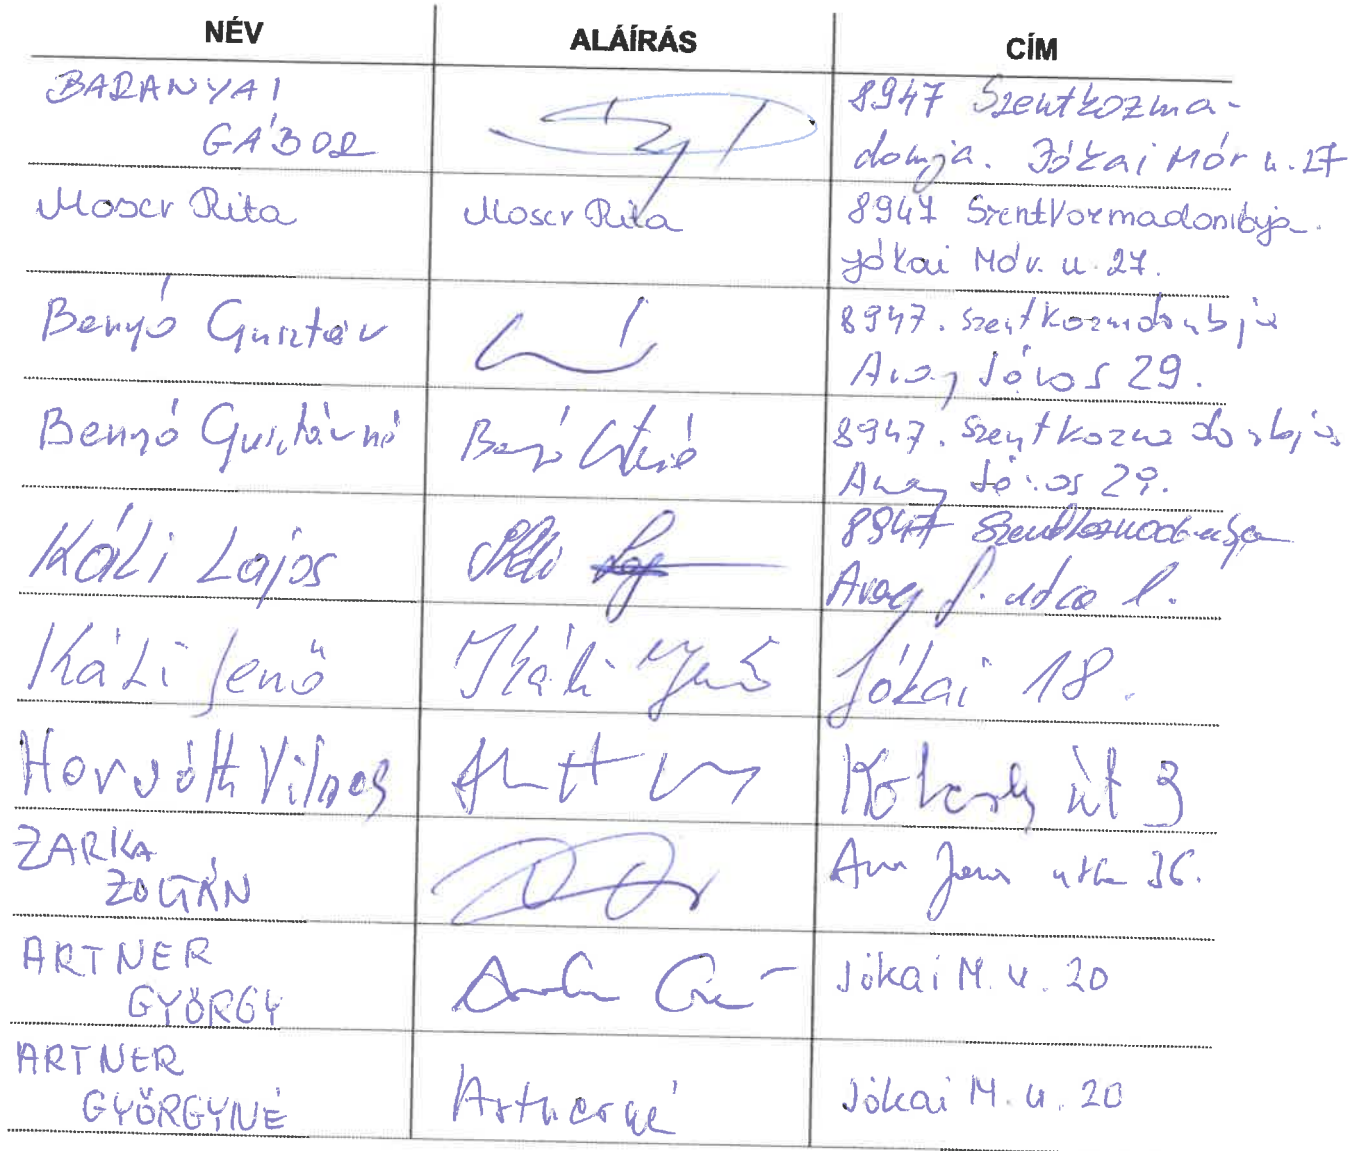 NÉV ALÁÍRÁS CÍM
BARANYAI
GÁBOR
8947 Szentkozma-
domja. Jókai Mór u. 27
Moser Rita Moser Rita 8947 Szentkozmadombja.
Jókai Mór. u. 27.
Benyó Gusztáv 8947. Szentkozmadombja
Arany János 29.
Benyó Gusztávné Benyó 8947. Szentkozmadombja
Arany János 29.
Káli Lajos Káli 8947 Szentkozmadombja
Arany J. utca 1.
Káli Jenő Káli Jenő Jókai 18.
Horváth Vilmos út 3
ZARKA
ZOLTÁN
36.
ARTNER
GYÖRGY
Jókai M. u. 20
ARTNER
GYÖRGYNÉ
Artnerné Jókai M. u. 20